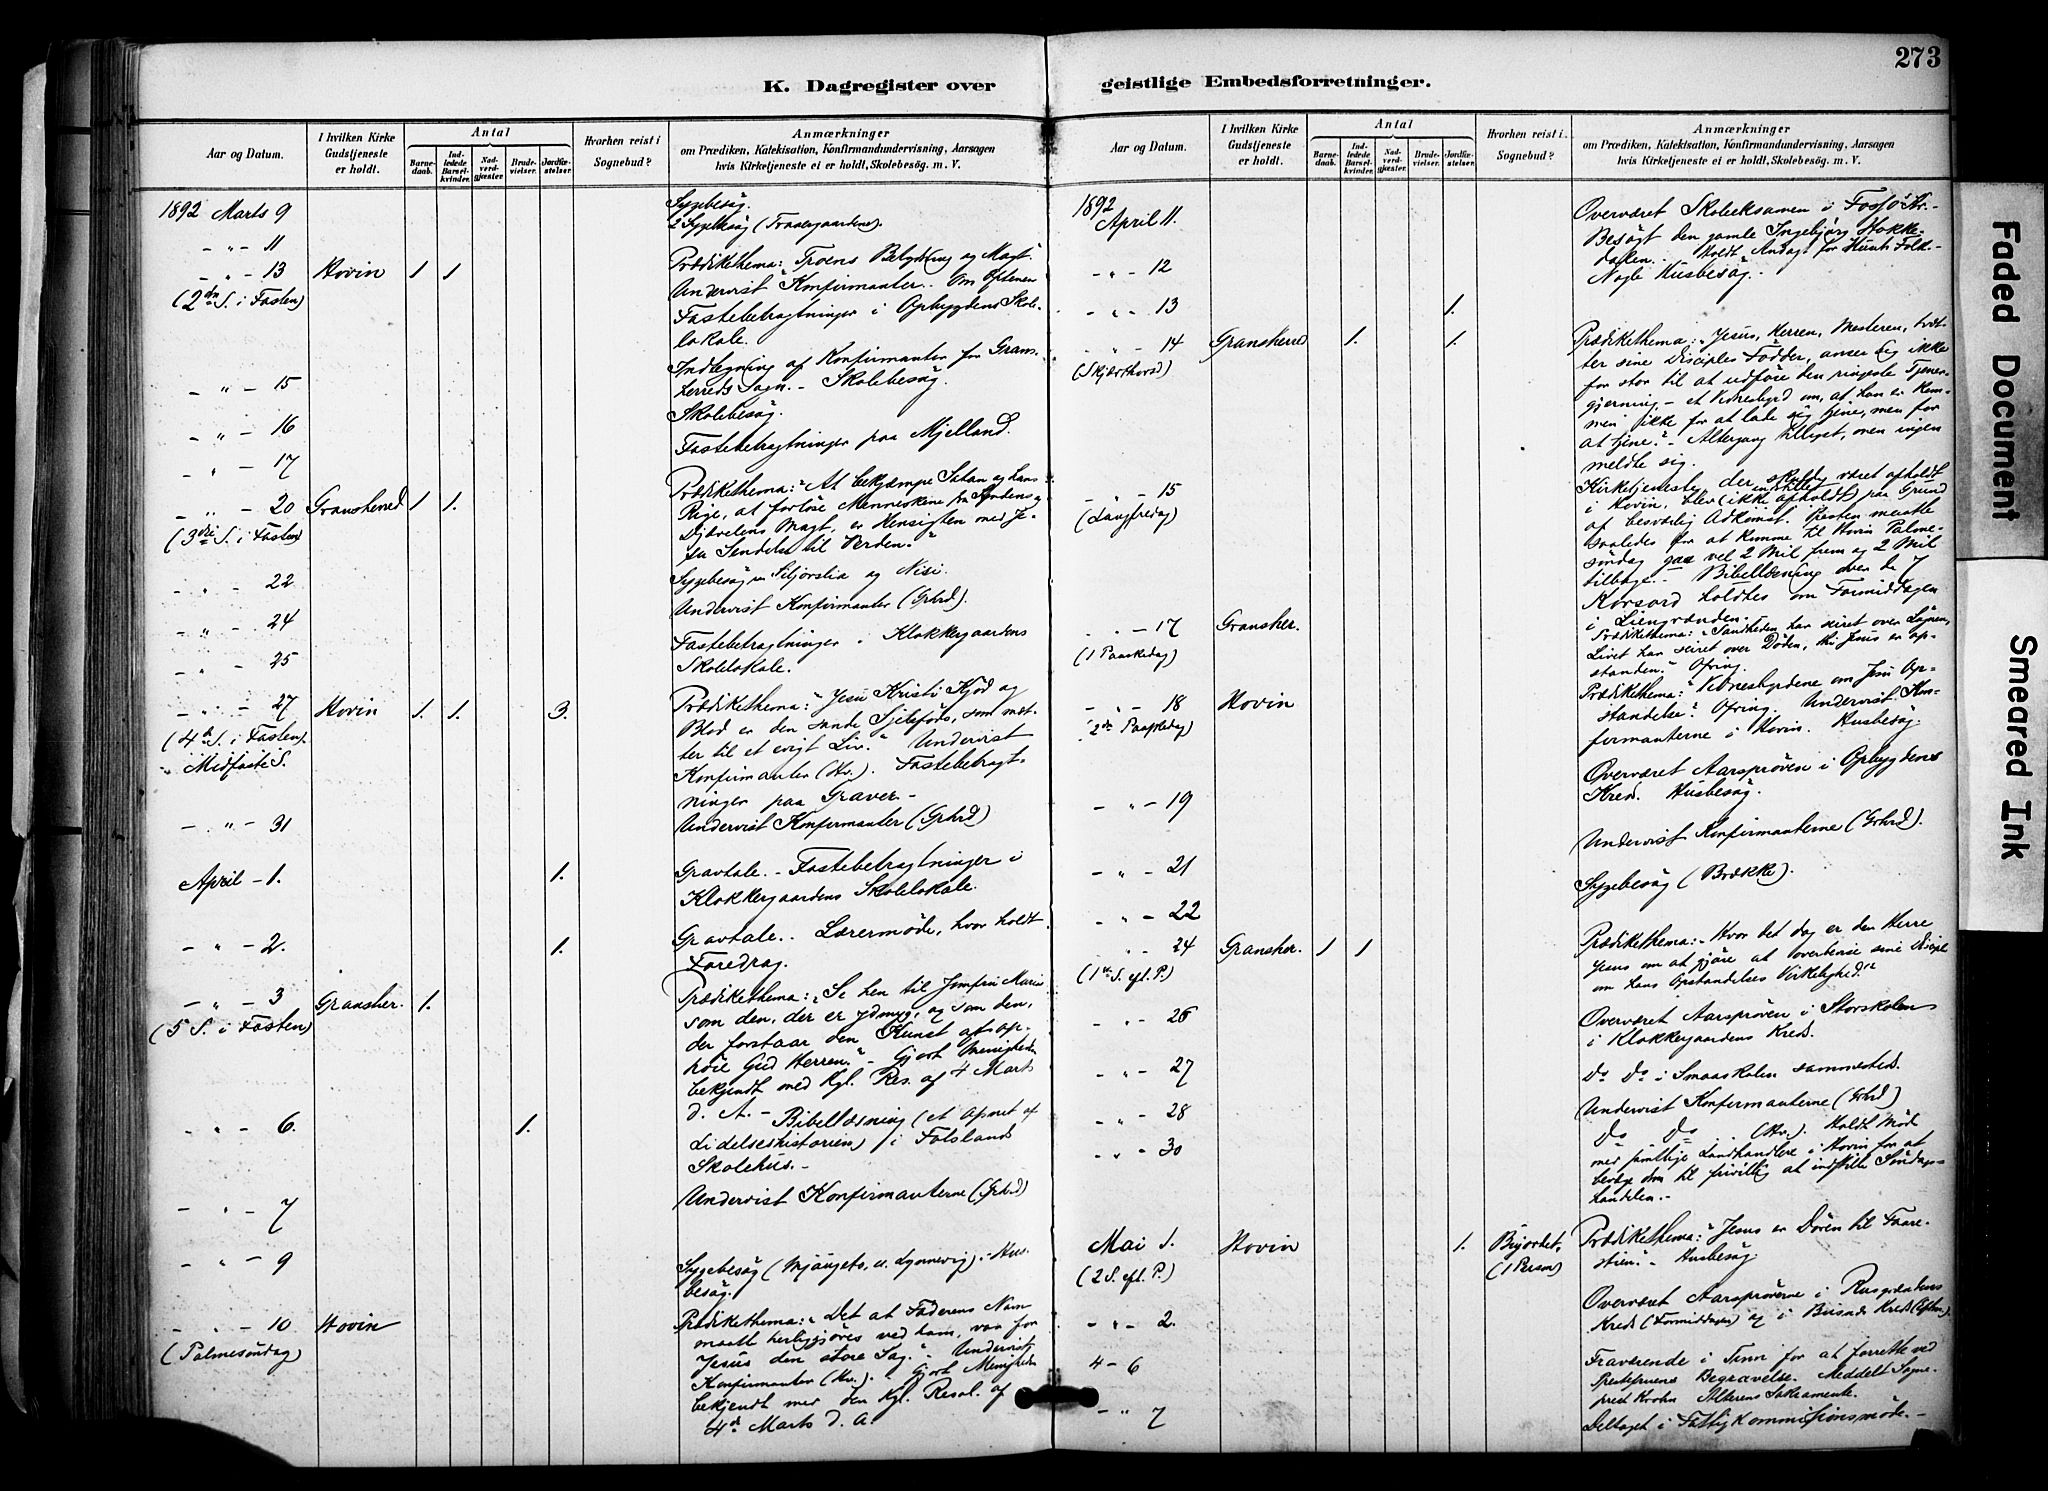 273
K. Dagregister over geistlige Embedsforretninger.
Aar og Datum.
I hvilken Kirke Gudstjeneste er holdt.
Antal
Barnedaab.
Indledede Barselkvinder.
Nadverdgjæster.
Brudevielser.
Jordfæstelser.
Hvorhen reist i Sognebud?
Anmærkninger
om Prædiken, Katekisation, Konfirmandundervisning, Aarsagen
hvis Kirketjeneste ei er holdt, Skolebesög. m. V.
1892 Marts 9 Sygebesög.
- " - 11 2 Sygebesög
- " - 13 Hovin 1 1 Prædikethema: Troens Betydning og Magt.
(2den S. i Fasten) Undervist Konfirmanter. Om Aftenen
Fastebetragtninger i Opbygdens Skole-
lokale.
- " - 15 Indtegning af Konfirmanter for Grans-
herreds Sogn. - Skolebesög.
- " - 16 Skolebesög.
- " - 17 Fastebetragtninger paa Mjelland.
- " - 20 Gransherred 1 1. Prædikethema: "At bekjæmpe Satan og hans
(3die S. i Fasten) Rige, at forlöse Menneskene fra Syndens og
Djævelens Magt, er Hensigten med Je-
su Sendelse til Verden."
- " - 22 Sygebesög Siljorslia og Nisi.
- " - 24 Undervist Konfirmanter (Grhrd).
- " - 25 Fastebetragtninger i Klokkergaardens
Skolelokale.
- " - 27 Hovin 1. 1. 3. Prædikethema: "Jesu Kristi Kjöd og
(4de S. i Fasten) Blod er den sande Sjeleföde, som mæt-
Midfaste S. ter til et evigt Liv." Undervist
Konfirmanter (Hv.). Fastebetragt-
ninger paa Graver -
- " - 31 Undervist Konfirmanter (Grhrd)
April - 1. 1. Gravtale. - Fastebetragtninger i
Klokkergaardens Skolelokale.
- " - 2. 1. Gravtale. Lærermöde, hvor holdt
Foredrag.
- " - 3 Gransher. 1. Prædikethema: "Se hen til Jomfru Maria
(5 S. i Fasten) som den, der er ydmyg, og som den,
der forstaar den Kunst at op-
höie Gud Herren." - Gjort Menigheden
bekjendt med Kgl. Res. af 4 Marts
d. A. -
- " - 6. 1. Bibellæsning (et Afsnit af
Lidelseshistorien) i Folsland
Skolehus. -
- " - 7 Undervist Konfirmanterne (Grhrd)
- " - 9 Sygebesög - Hus-
besög.
- " - 10 Hovin Prædikethema: "Det at Faderens Navn
(Palmesöndag) maatte herliggjöres ved ham, var for
Jesus den store Sag." - Undervist
Konfirmanter (Hv.). Gjort Menigheden
bekjendt med den Kgl. Resol. af
4de Marts d. A.
Aar og Datum.
I hvilken Kirke Gudstjeneste er holdt.
Antal
Barnedaab.
Indledede Barselkvinder.
Nadverdgjæster.
Brudevielser.
Jordfæstelser.
Hvorhen reist i Sognebud?
Anmærkninger
om Prædiken, Katekisation, Konfirmandundervisning, Aarsagen
hvis Kirketjeneste ei er holdt, Skolebesög. m. V.
1892
April 11. Overværet Skoleeksamen i Fossö Kr. -
Besögt den gamle Ingebjörg Stokke-
dalen. - Holdt Andagt for Folk -
- " - 12 Nogle Husbesög -
- " - 13 1.
- " - 14 Gransherred 1. 1. Prædikethema: "Jesus, Herren, Mesteren, tvæt-
(Skjærthorsd) ter sine Disciples Födder, anser sig ikke
for stor til at udföre den ringeste Tjener-
gjerning - et Vidnesbyrd om, at han er kom-
men ikke for at lade sig tjene, men for
at tjene." - Altergang tillyst, men ingen
meldte sig.
- " - 15 Kirketjeneste, der skulde været afholdt
(Langfredag) i Hovin, blev (ikke afholdt) indstillet paa Grund
af besværlig Adkomst. Præsten maatte
saaledes for at komme til Hovin Palme-
söndag gaa vel 2 Mil frem og 2 Mil
tilbage. - Bibellæsning over de 7
Korsord holdtes om Formiddagen
i Liengrænden.
- " - 17 Gransher. Prædikethema: "Sandheden har seiret over Lögnen,
(1 Paaskedag) Livet har seiret over Döden, thi Jesus er op-
standen." Ofring.
- " - 18 Hovin Prædikethema: "Vidnesbyrdene om Jesu Op-
(2den Paaskedag) standelse." Ofring. Undervist Kon-
firmanterne i Hovin. Husbesög.
- " - 19 Overværet Aarspröven i Opbygdens
Kreds. Husbesög.
- " - 21 Undervist Konfirmanterne (Grhrd).
- " - 22 Sygebesög (Brække).
- " - 24 Gransher. 1 1 Prædikethema: "Hvor det dog er den Herre
(1ste S. eft. P.) Jesus om at gjöre at overbevise sine Discipl
om hans Opstandelses Virkelighed."
- " - 26 Overværet Aarspröven i Storskolen
i Klokkergaardens Kreds.
- " - 27 do do i Smaaskolen sammesteds.
- " - 28 Undervist Konfirmanterne (Grhrd)
- " - 30 do do (Hv.). Holdt Möde
med samtlige Landhandlere i Hovin for at
bevæge dem til frivillig at indstille Söndags-
handelen. -
Mai 1. Hovin 1. (1 Person) Prædikethema: "Jesus er Dören til Faare-
(2 S. eft. P.) stien." - Husbesög.
- " - 2. Overværet Aarspröverne i Rusgrændens
Kreds (Formiddagen) og i Busnæs Kreds (Aften).
4 - 6 Fraværende i Tinn for at forrette ved
Begravelse. Meddelt Sogne-
præst Krohn Alterens Sakramente.
- " - 7 Deltaget i Fattigkommissionsmöde. -
Faded Document
Smeared Ink